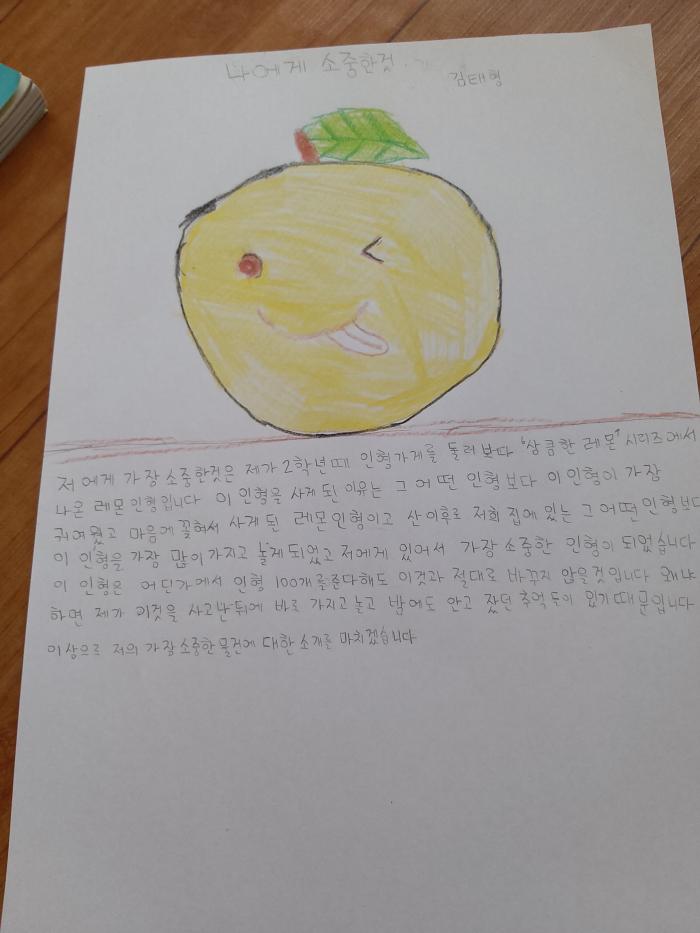 나에게 소중한것
김태형
저에게 가장 소중한것은 제가 2학년때 인형가게를 둘러보다 "상큼한 레몬" 시리즈에서
나온 레몬 인형입니다 이 인형을 사게 된 이유는 그 어떤 인형보다 이 인형이 가장
귀여웠고 마음에 꽃혀서 사게 된 레몬인형이고 산 이후로 저희 집에 있는 그 어떤인형보다
이 인형을 가장 많이 가지고 놀게 되었고 저에게 있어서 가장 소중한 인형이 되었습니다
이 인형은 어딘가에서 인형 100개를준다해도 이것과 절대로 바꾸지 않을것입니다 왜냐
하면 제가 이것을 사고난뒤에 바로 가지고 놀고 밤에도 안고 잤던 추억들이 있기때문입니다
이상으로 저의 가장 소중한 물건에 대한 소개를 마치겠습니다